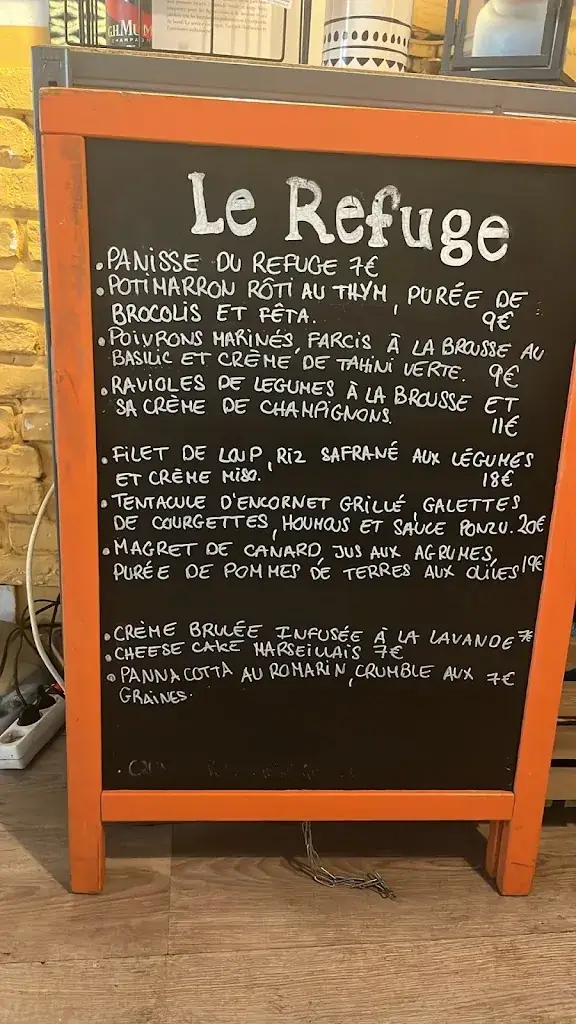 GH.MUM
CHAMPAGN
Le Refuge
• PANISSE DU REFUGE 7€
• POTIMARRON RÔTI AU THYM, PURÉE DE
BROCOLIS ET FÊTA. 9€
• POIVRONS MARINÉS, FARCIS À LA BROUSSE AU
BASILIC ET CRÈME DE TAHINI VERTE. 9€
• RAVIOLES DE LEGUMES À LA BROUSSE ET
SA CRÈME DE CHAMPIGNONS. 11€
• FILET DE LOUP, RIZ SAFRANÉ AUX LÉGUMES
ET CRÈME MISO. 18€
• TENTACULE D'ENCORNET GRILLÉ, GALETTES
DE COURGETTES, HOUMOUS ET SAUCE PONZU. 20€
• MAGRET DE CANARD, JUS AUX AGRUMES,
PURÉE DE POMMES DE TERRES AUX OLIVES 19€
• CRÈME BRULÉE INFUSÉE À LA LAVANDE 7€
• CHEESE CAKE MARSEILLAIS 7€
• PANNA COTTA AU ROMARIN, CRUMBLE AUX 7€
GRAINES.